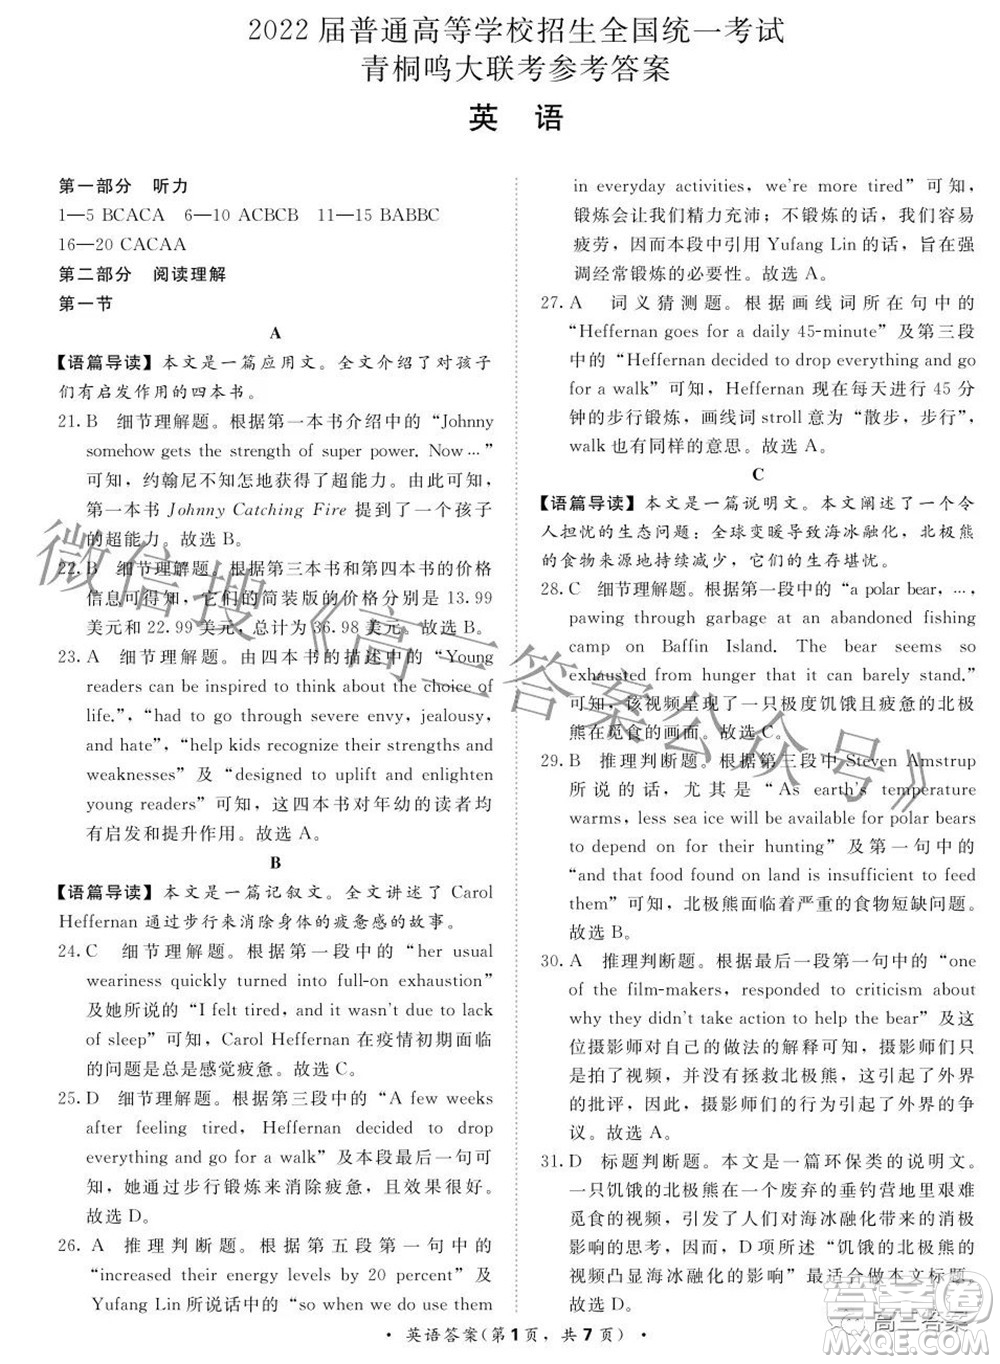 2022 届普通高等学校招生全国统一考试
青桐鸣大联考参考答案
英 语
第一部分 听力
1—5 BCACA 6—10 ACBCB 11—15 BABBC
16—20 CACAA
第二部分 阅读理解
第一节
A
【语篇导读】本文是一篇应用文。全文介绍了对孩子
们有启发作用的四本书。
21. B 细节理解题。根据第一本书介绍中的“Johnny
somehow gets the strength of super power. Now …”
可知，约翰尼不知怎地获得了超能力。因此可知，
第一本书 Johnny Catching Fire 提到了一个孩子
的超能力。故选 B。
22. B 细节理解题。根据第三本书和第四本书的价格
信息可得知，它们的简装版的价格分别是 13.99
美元和 22.99 美元，总计为 36.98 美元。故选 B。
23. A 细节理解题。由四本书的描述中的“Young
readers can be inspired to think about the choice of
life.”，“had to go through severe envy, jealousy,
and hate”，“help kids recognize their strengths and
weaknesses”及“designed to uplift and enlighten
young readers”可知，这四本书对年幼的读者均
有启发和提升作用。故选 A。
B
【语篇导读】本文是一篇记叙文。全文讲述了 Carol
Heffernan 通过步行来消除身体的疲惫感的故事。
24. C 细节理解题。根据第一段中的“her usual
weariness quickly turned into full-on exhaustion”
及她所说的“I felt tired, and it wasn't due to lack
of sleep”可知，Carol Heffernan 在疫情初期面临
的问题是总是感觉疲惫。故选 C。
25. D 细节理解题。根据第三段中的“A few weeks
after feeling tired, Heffernan decided to drop
everything and go for a walk”及本段第一句可
知，她通过步行锻炼来消除疲惫，并取得了成效。
故选 D。
26. A 推理判断题。根据第五段第一句中的
“increased their energy levels by 20 percent”及
Yufang Lin 所说话中的“so when we do use them
in everyday activities, we're more tired”可知，
锻炼会让我们精力充沛；不锻炼的话，我们容易
疲劳，因而本段中引用 Yufang Lin 的话，旨在强
调经常锻炼的必要性。故选 A。
27. A 词义猜测题。根据画线词所在句中的
“Heffernan goes for a daily 45-minute”及第三段
中的“Heffernan decided to drop everything and go
for a walk”可知，Heffernan 现在每天进行 45 分
钟的步行锻炼，画线词 stroll 意为“散步，步行”，
walk 也有同样的意思。故选 A。
C
【语篇导读】本文是一篇说明文。本文阐述了一个令
人担忧的生态问题：全球变暖导致海冰融化，北极熊
的食物来源地持续减少，它们的生存堪忧。
28. C 细节理解题。根据第一段中的“a polar bear, …,
pawing through garbage at an abandoned fishing
camp on Baffin Island. The bear seems so
exhausted from hunger that it can barely stand.”
可知，该视频呈现了一只极度饥饿且疲惫的北极
熊在觅食的画面。故选 C。
29. B 推理判断题。根据第三段中 Steven Amstrup
所说的话，尤其是“As earth's temperature
warms, less sea ice will be available for polar bears
to depend on for their hunting”及第一句中的
“and that food found on land is insufficient to feed
them”可知，北极熊面临着严重的食物短缺问题。
故选 B。
30. A 推理判断题。根据最后一段第一句中的“one
of the film-makers, responded to criticism about
why they didn't take action to help the bear”及这
位摄影师对自己的做法的解释可知，摄影师们只
是拍了视频，而没有拯救北极熊，这引起了外界
的批评，可见，摄影师们的举动引发了外界的争
议。故选 A。
31. D 标题判断题。本文是一篇环保类的说明文。
一只饥饿的北极熊在一个废弃的垂钓营地里艰难
觅食的视频，引发了人们对海冰融化带来的消极
影响的思考，因而 D 项所述“饥饿的北极熊觅食
的视频凸显海冰融化的影响”最适合做本文标题。
故选 D。
• 英语答案（第 1 页，共 7 页） •
微信搜《高三答案公众号》
答案圈
高三答案